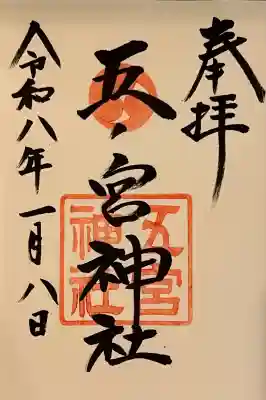 奉拝
五ノ宮神社
五宮
神社
令和八年一月八日